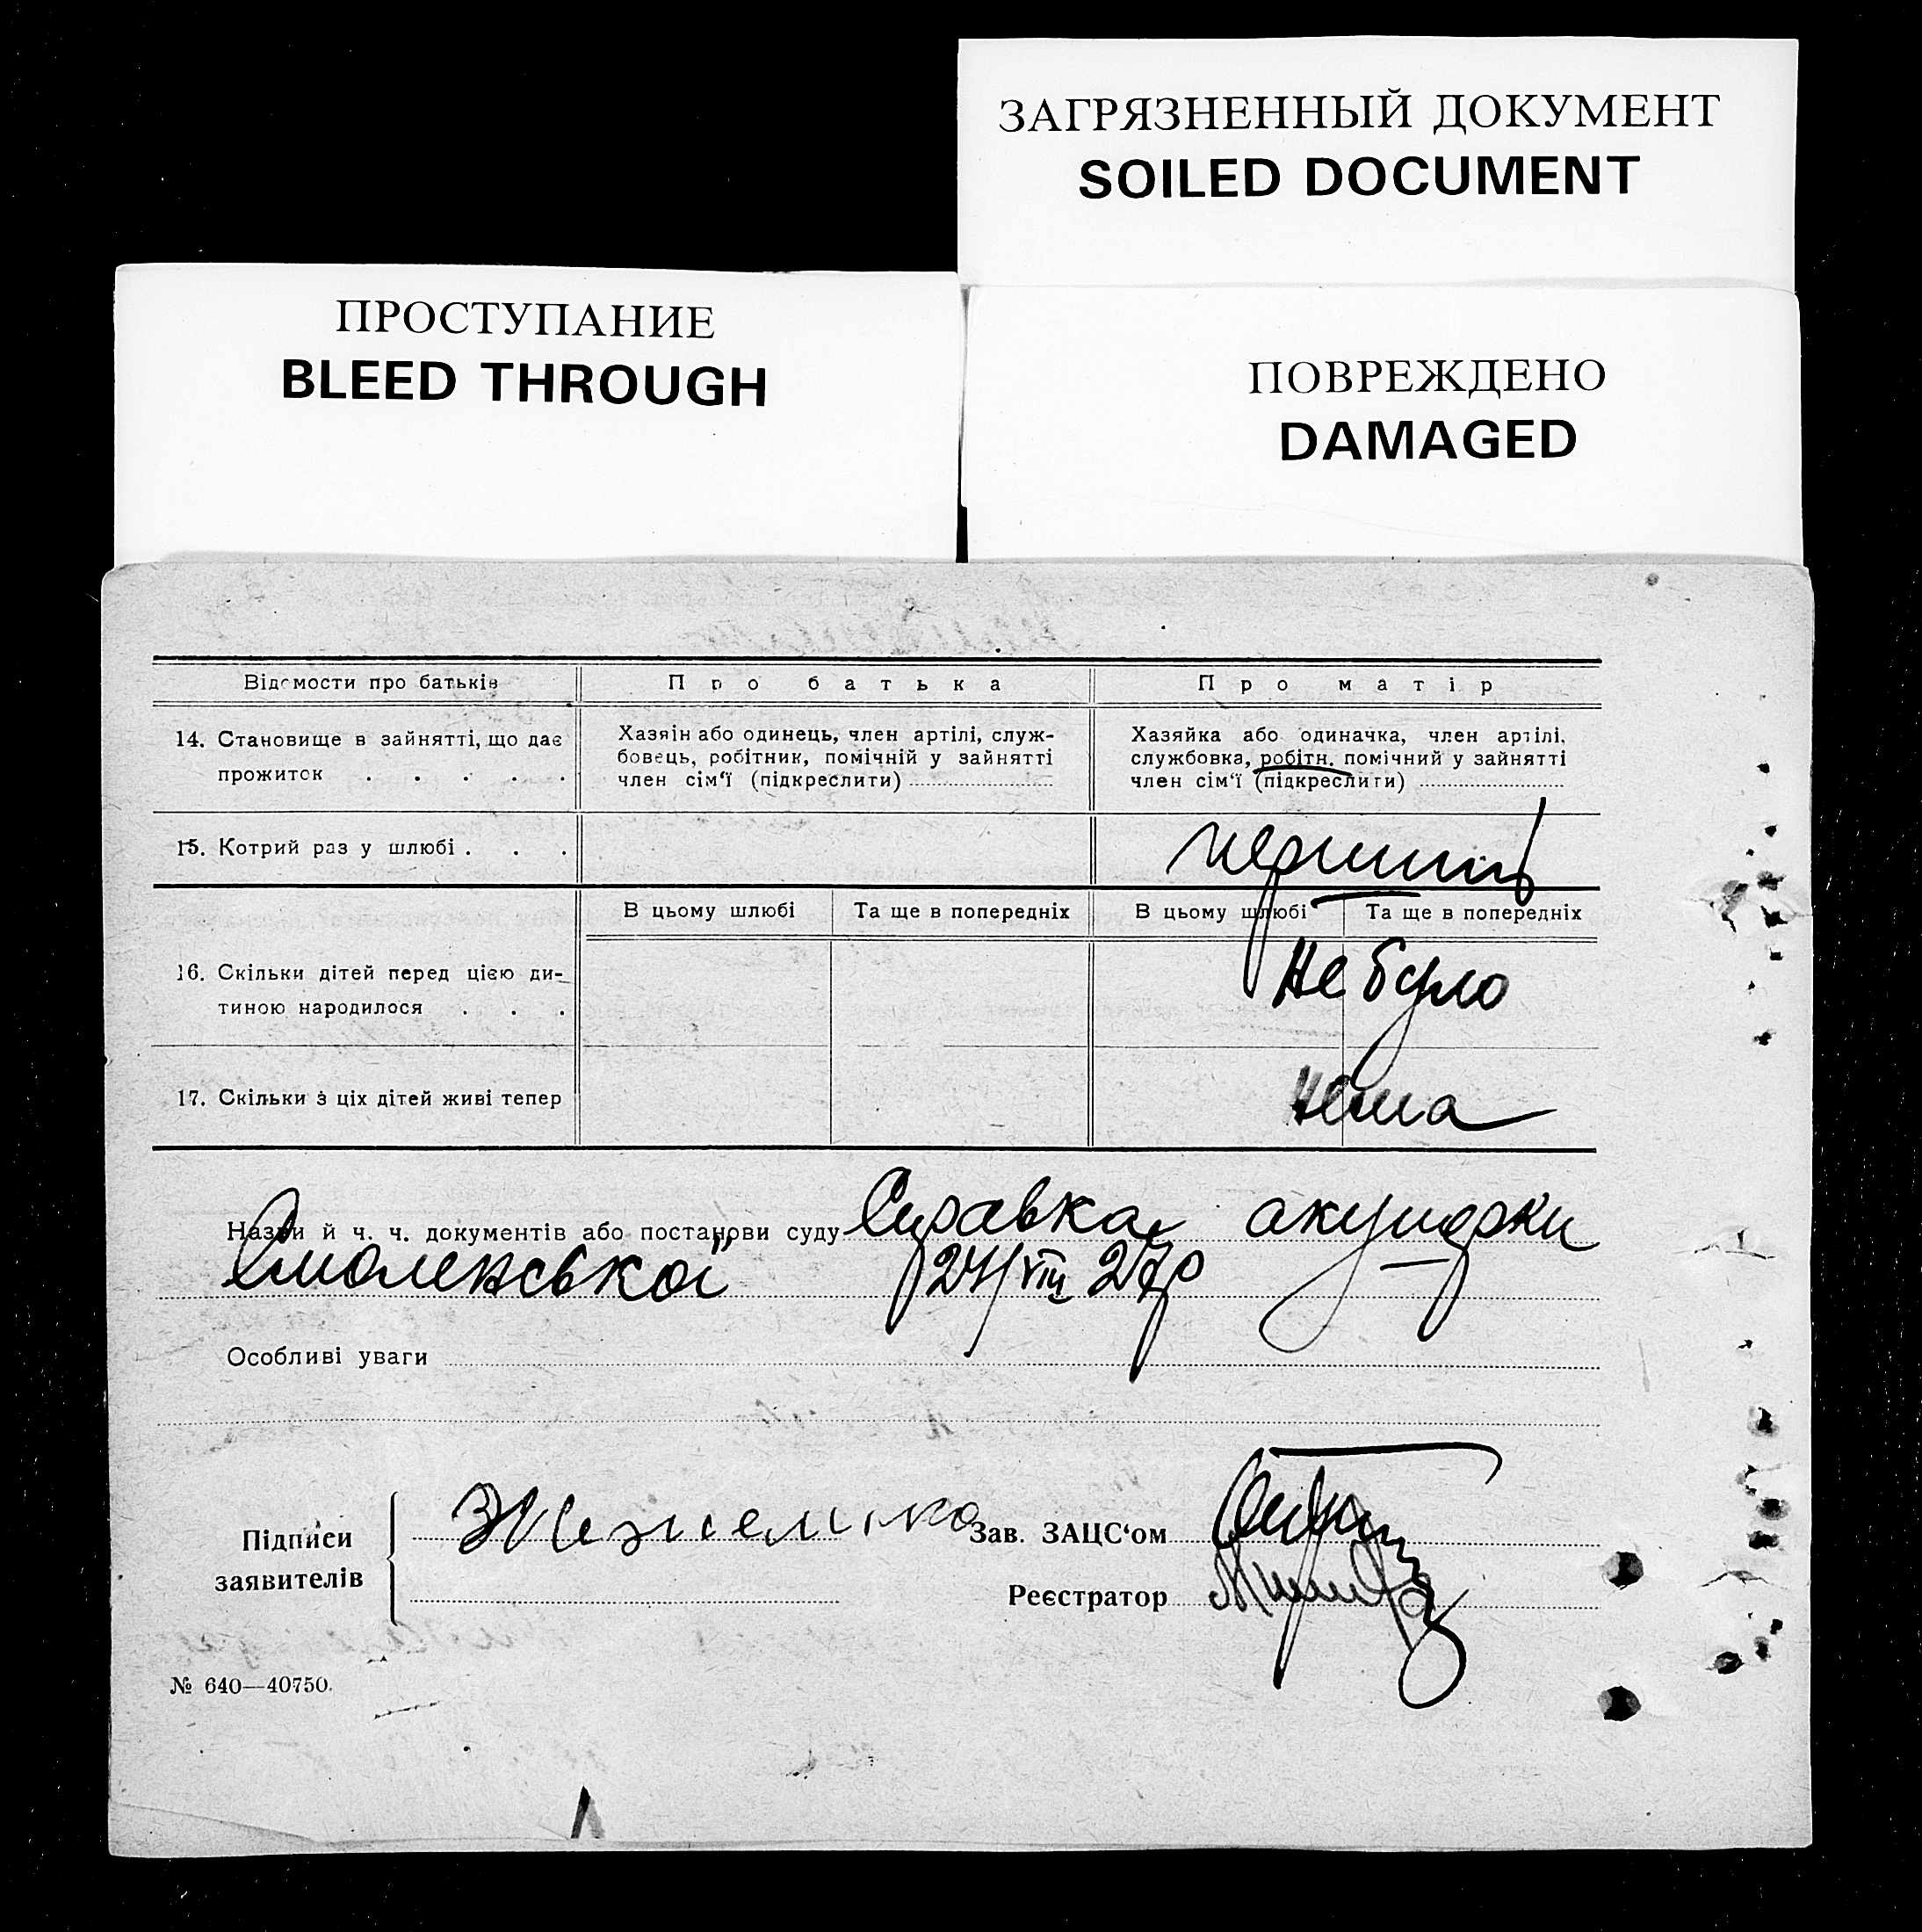 ЗАГРЯЗНЕННЫЙ ДОКУМЕНТ
SOILED DOCUMENT
ПРОСТУПАНИЕ
BLEED THROUGH
ПОВРЕЖДЕНО
DAMAGED
Відомости про батьків
Про батька
Про матір
14. Становище в зайнятті, що дає
прожиток . . . . .
Хазяїн або одинець, член артілі, служ-
бовець, робітник, помічній у зайнятті
член сім'ї (підкреслити)
Хазяйка або одиначка, член артілі,
службовка, робітн. помічний у зайнятті
член сім'ї (підкреслити)
15. Котрий раз у шлюбі . . .
перший
В цьому шлюбі
Та ще в попередніх
В цьому шлюбі
Та ще в попередніх
16. Скільки дітей перед цією ди-
тиною народилося . . .
Не було
17. Скільки з ціх дітей живі тепер
Нема
Назви й ч. ч. документів або постанови суду Справка акушерки
Смоленської 24/VIII 27р
Особливі уваги
Підписи
заявителів
Зав. ЗАЦС'ом
Реєстратор
№ 640—40750.